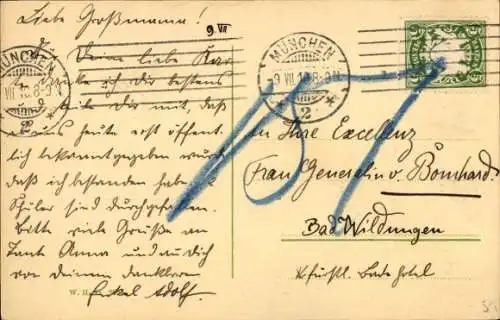 Liebe Großmama!
9. VII
Deine liebe Kar
danke ich Dir bestens
teile Dir mit, daß
heute erst öffent
lich bekanntgegeben wurde
daß ich bestanden habe
Schüler sind durchgefallen.
Bitte viele Grüße an
Tante Anna und an Dich
von Deinem dankbaren
Enkel Adolf.
MÜNCHEN
2
MÜNCHEN
9 VII 10. 8-9 N.
2
5 5
An Ihre Excellenz
Frau Generalin v. Bomhard.
Bad Wildungen
Fürstl. Badehotel
W. H.